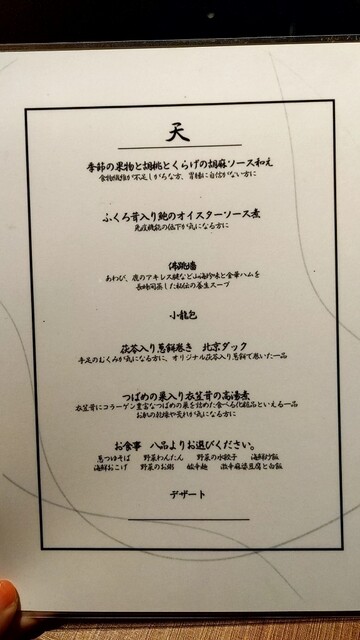 天
季節の果物と胡桃とくらげの胡麻ソース和え
食物繊維が不足しがちな方、胃腸に自信がない方に
ふくろ茸入り鮑のオイスターソース煮
免疫機能の低下が気になる方に
佛跳牆
あわび、鹿のアキレス腱など山海珍味と金華ハムを
長時間蒸した秘伝の養生スープ
小龍包
茯苓入り葱餅巻き 北京ダック
手足のむくみが気になる方に、オリジナル茯苓入り葱餅で巻いた一品
つばめの巣入り衣笠茸の高湯煮
衣笠茸にコラーゲン豊富なつばめの巣を詰めた食べる化粧品といえる一品
お肌の乾燥や荒れが気になる方に
お食事 八品よりお選びください。
葱つゆそば 野菜わんたん 野菜の水餃子 海鮮炒飯
海鮮おこげ 野菜のお粥 酸辛麺 激辛麻婆豆腐と白飯
デザート